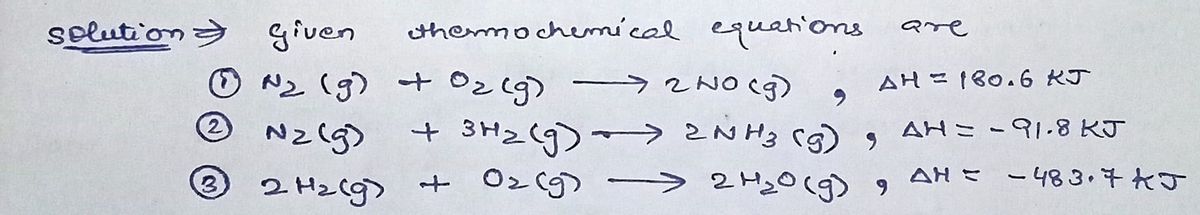 solution ⇒ given thermochemical equations are
① N₂ (g) + O₂ (g) ⟶ 2 NO (g) , ΔH = 180.6 KJ
② N₂ (g) + 3H₂ (g) ⟶ 2 NH₃ (g) , ΔH = -91.8 KJ
③ 2 H₂ (g) + O₂ (g) ⟶ 2 H₂O (g) , ΔH = -483.7 KJ